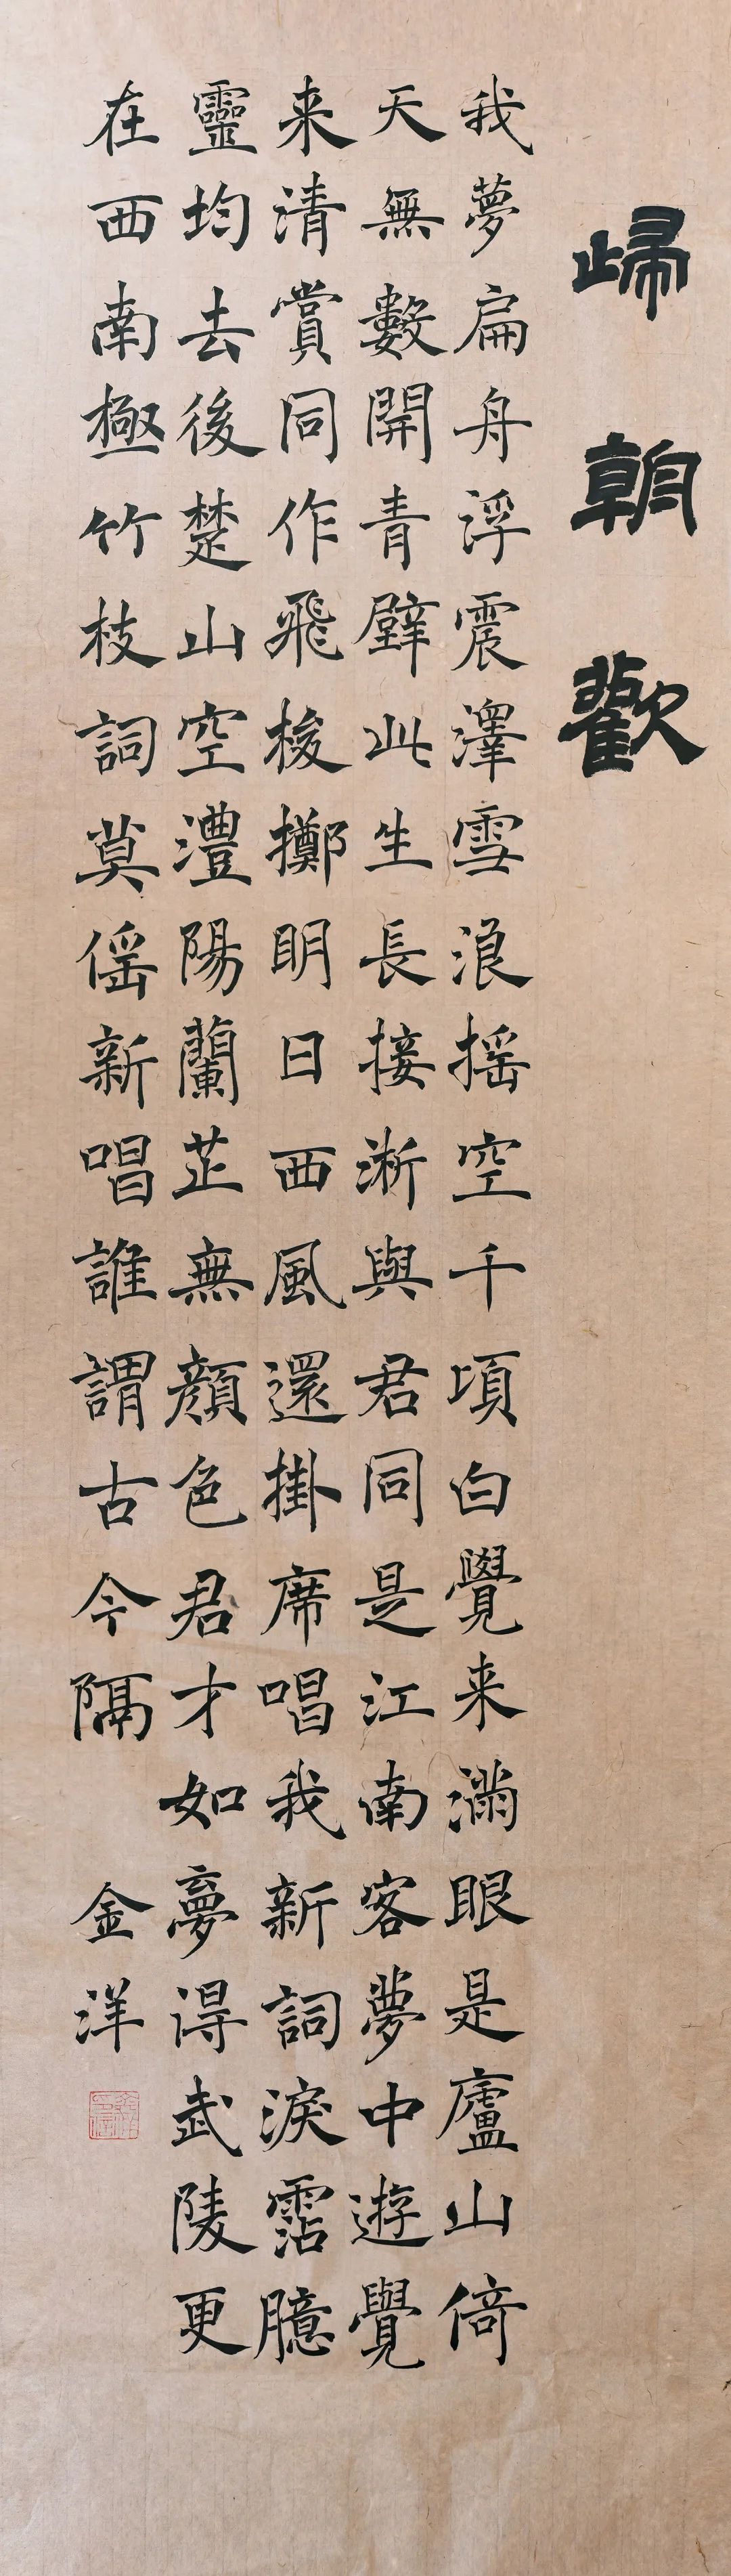 歸朝歡
我夢扁舟浮震澤雪浪摇空千頃白覺来滿眼是廬山倚
天無數開青壁此生長接淅與君同是江南客夢中遊覺
来清賞同作飛梭擲明日西風還掛席唱我新詞淚霑臆
靈均去後楚山空澧陽蘭芷無顔色君才如夢得武陵更
在西南極竹枝詞莫傜新唱誰謂古今隔
金洋